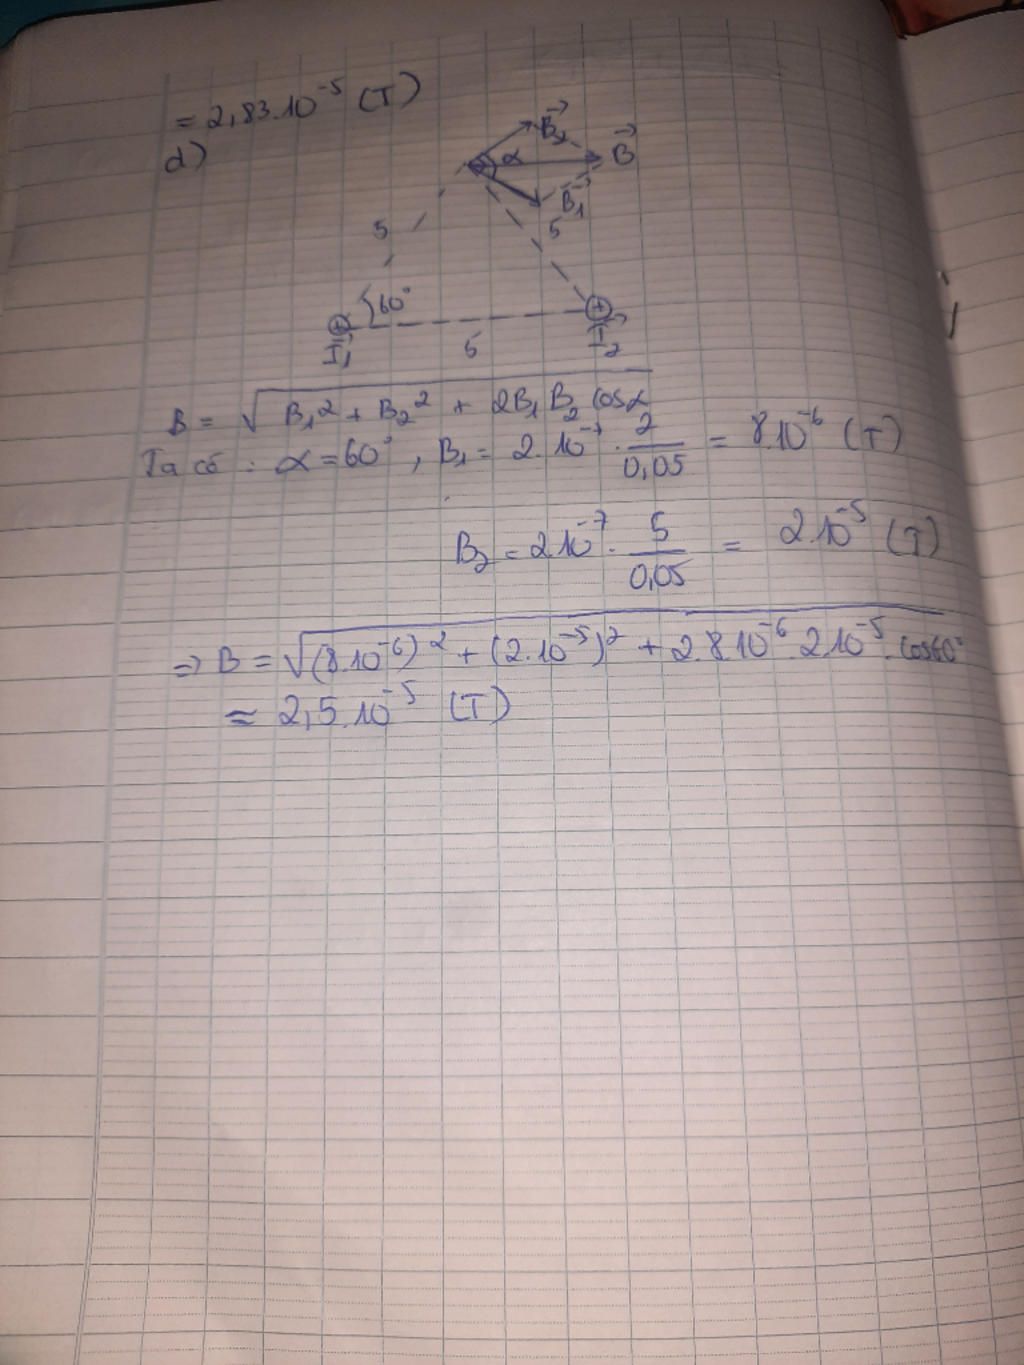 = 2,83.10⁻⁵ (T)
d)
B₂→
α
B→
B₁→
5
5
60°
I₁→
5
I₂→
B = √(B₁² + B₂² + 2B₁B₂ cosα)
Ta có : α = 60°, B₁ = 2.10⁻⁷ . 2/0,05 = 8.10⁻⁶ (T)
B₂ = 2.10⁻⁷ . 5/0,05 = 2.10⁻⁵ (T)
⇒ B = √((8.10⁻⁶)² + (2.10⁻⁵)² + 2.8.10⁻⁶.2.10⁻⁵.cos60°)
≈ 2,5.10⁻⁵ (T)